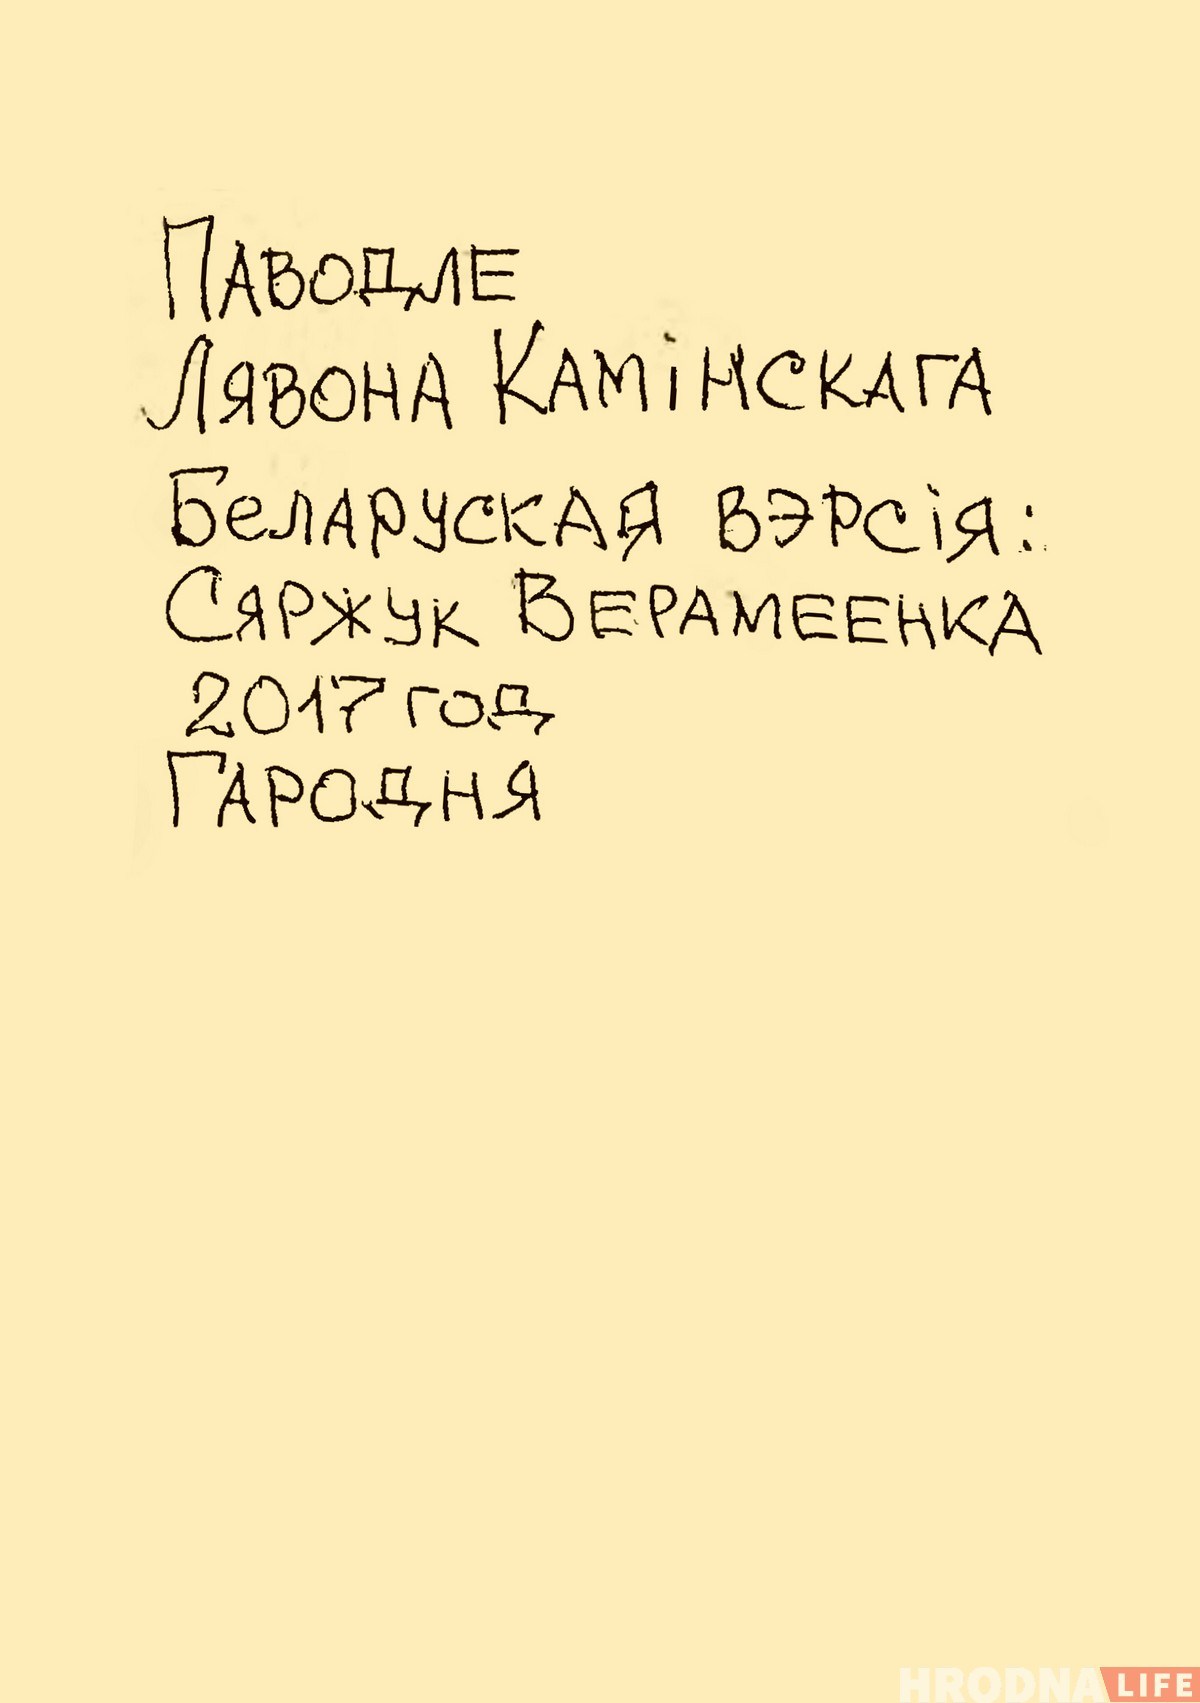 Паводле
Лявона Камінскага
Беларуская вэрсія:
Сяржук Верамеенка
2017 год
Гародня
HRODNA LIFE